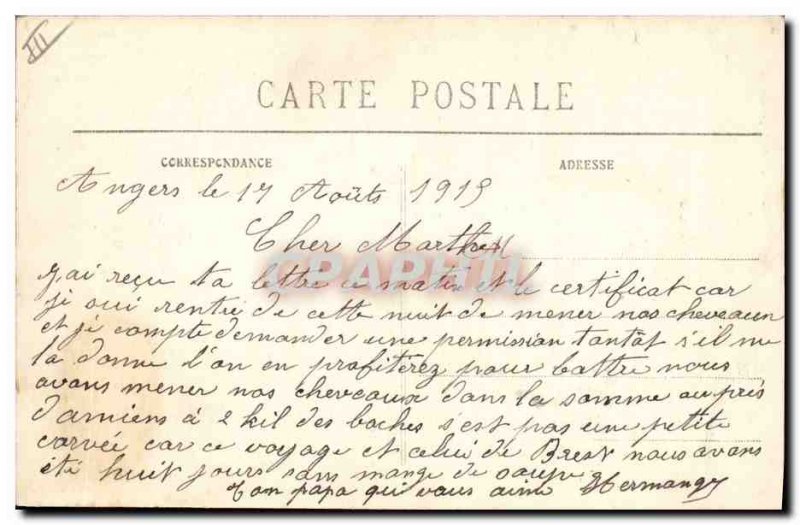 III
CARTE POSTALE
CORRESPONDANCE
ADRESSE
Angers le 17 Aoûts 1915
Cher Marthe
j'ai reçu ta lettre ce matin et le certificat car
je oui rentré de cette nuit de mener nos cheveaux
et je compte demander une permission tantôt s'il me
la donne l'on en profiterez pour battre nous
avons mener nos cheveaux dans la somme au près
d'amiens à 2 kil des boches s'est pas une petite
corvée car ce voyage et celui de Brest nous avons
été huit jours sans mangé de soupe
Ton papa qui vous aime Hermangy